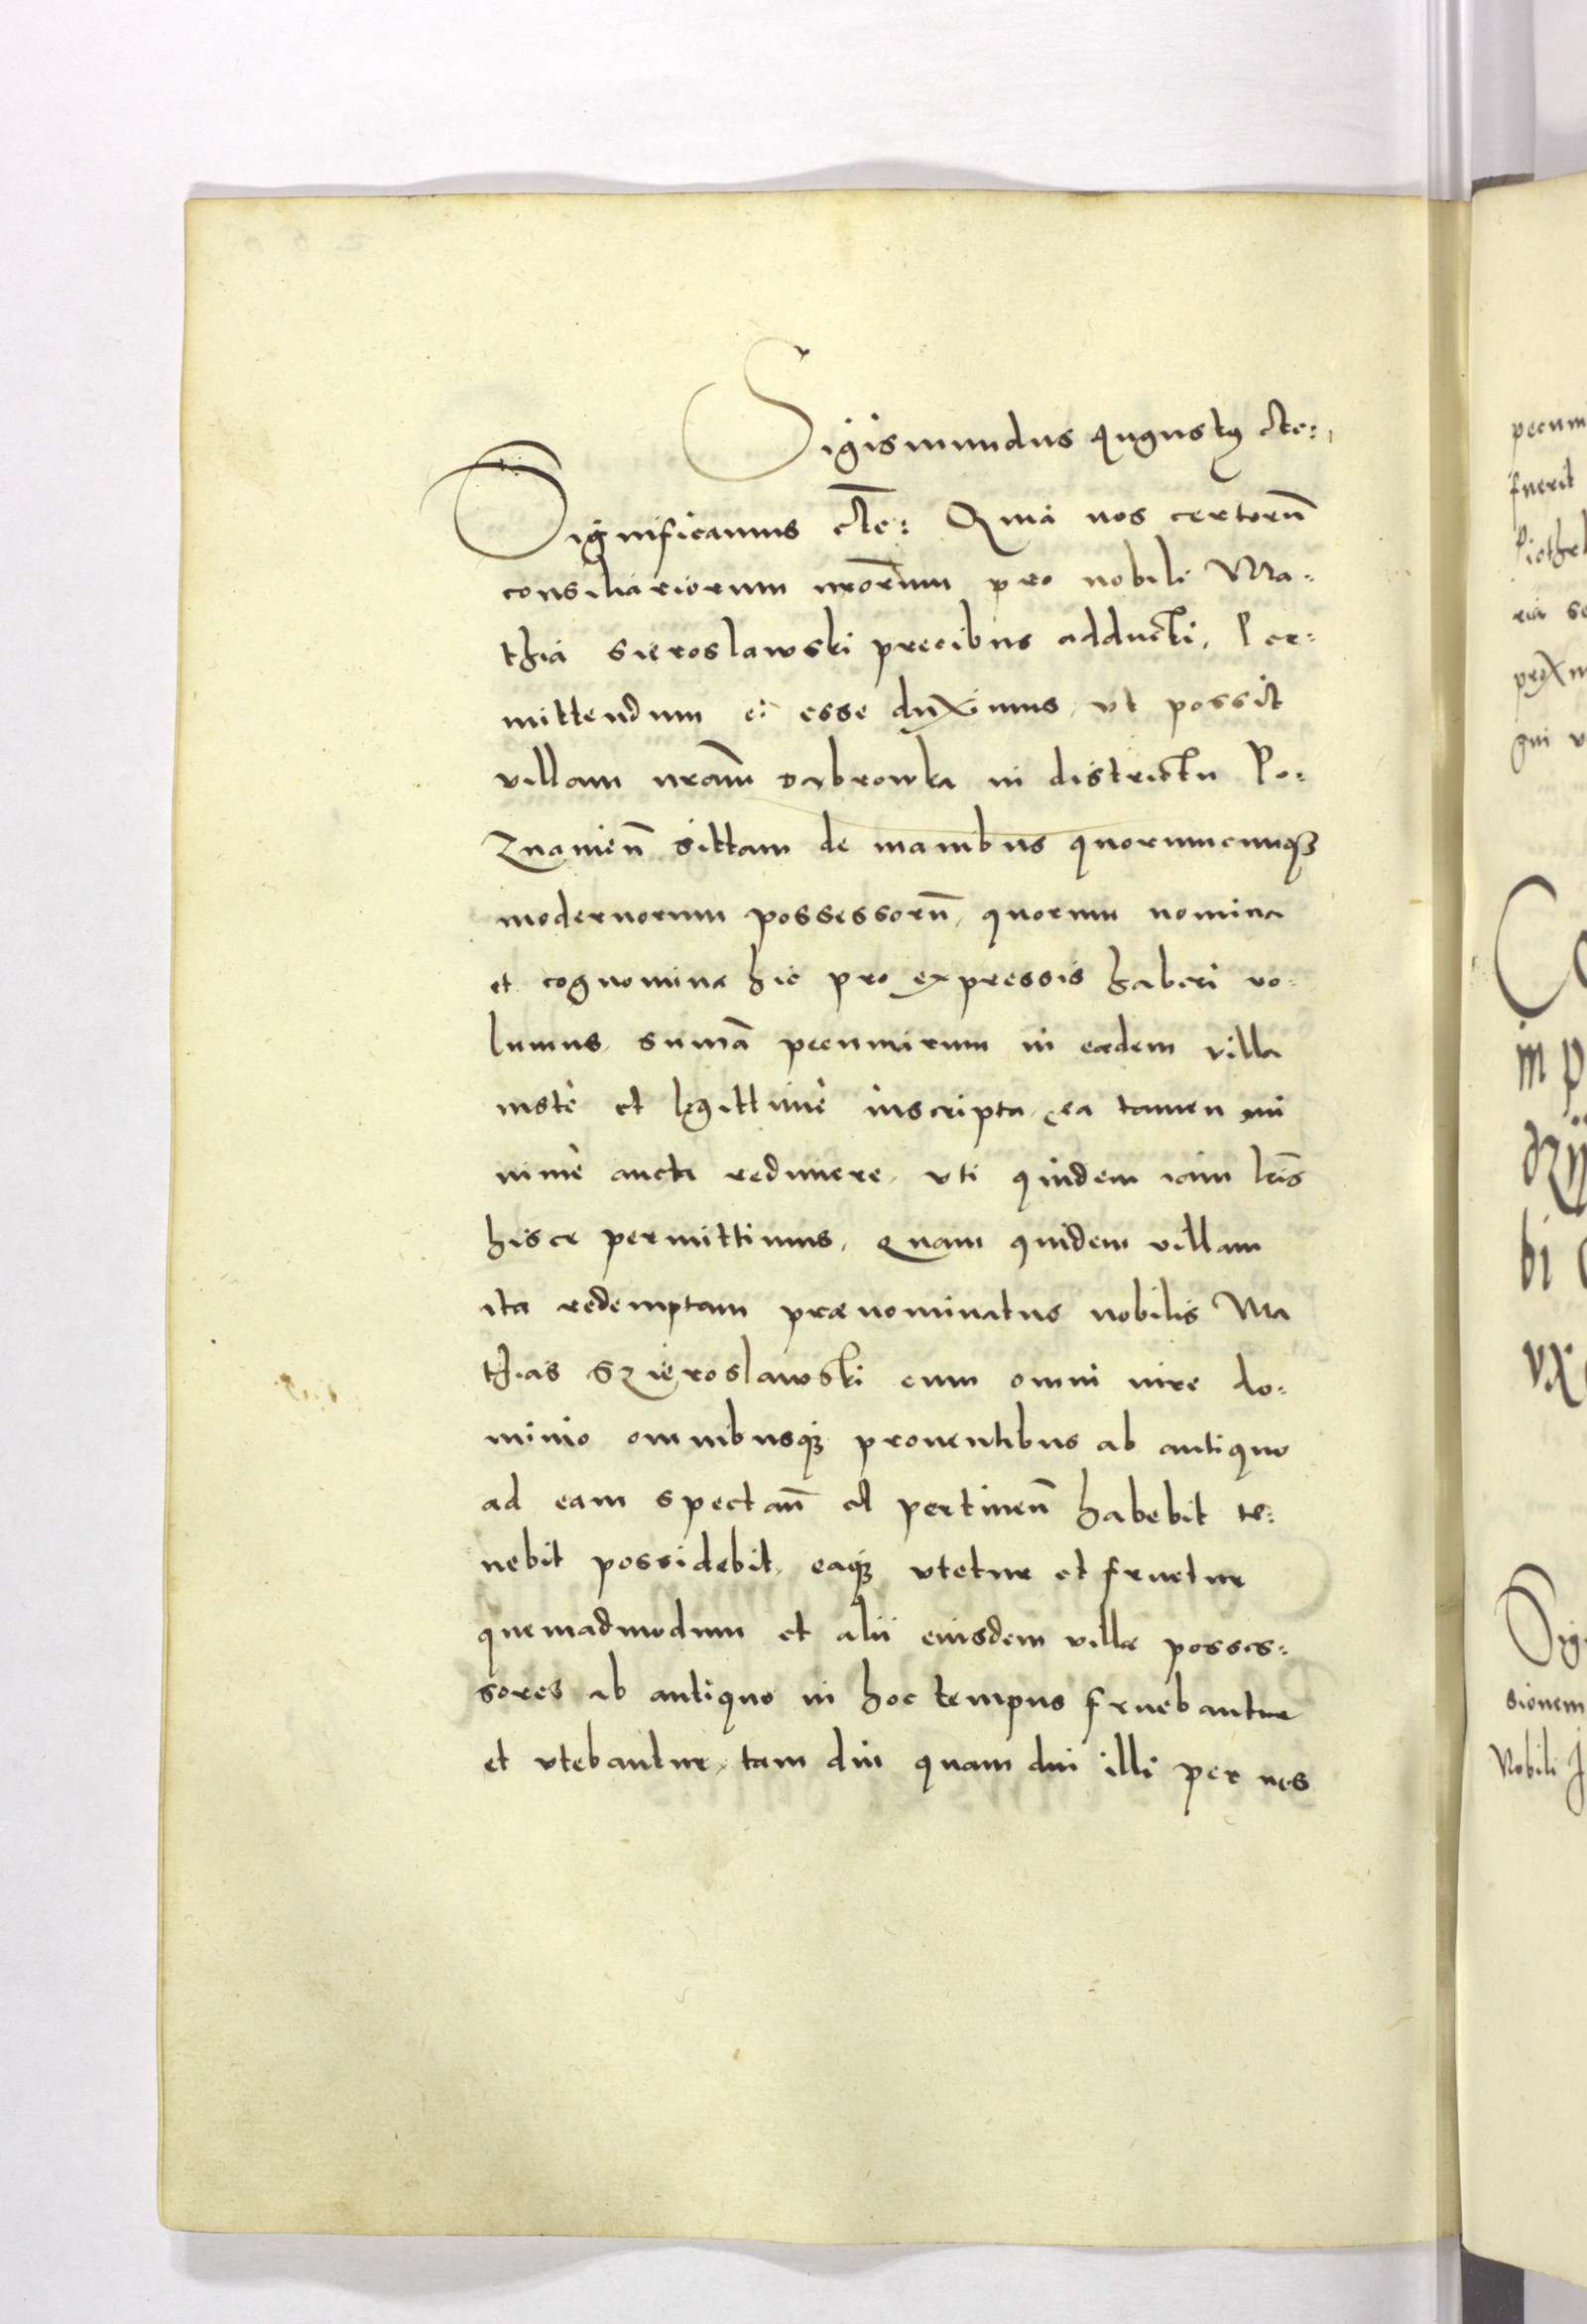 Sigismundus Augustꝰ etc:
Significamus etc: Quia nos certorū
consiliariorum nr̄orum pro nobili Ma-
thia Sieroslawski precibus adducti, Per-
mittendum ei esse duximus, vt possit
villam nr̄am Dabrowka in districtu Po-
znanien̄ sittam de manibus quorumcunqꝫ
modernorum possessorū, quorum nomina
et cognomina hic pro expressis haberi vo-
lumus, sum̄a pecuniarum in eadem villa
iuste et legittime inscripta, ea tamen mi
nime aucta redimere, vti quidem iam lr̄is
hisce permittimus, Quam quidem villam
ita redemptam prænominatus nobilis Ma
thias Szieroslawski cum omni iure do-
minio omnibusqꝫ prouentibus ab antiquo
ad eam spectan̄ et pertinen̄ habebit te-
nebit possidebit, eaqꝫ vtetur et fruetur
quemadmodum et alii eiusdem villæ posses-
sores ab antiquo in hoc tempus fruebantur
et vtebantur, tam diu quam diu illi per nos
pecun
fuerit
gni v
in p
bi
vx
Sig
sionem
Nobili